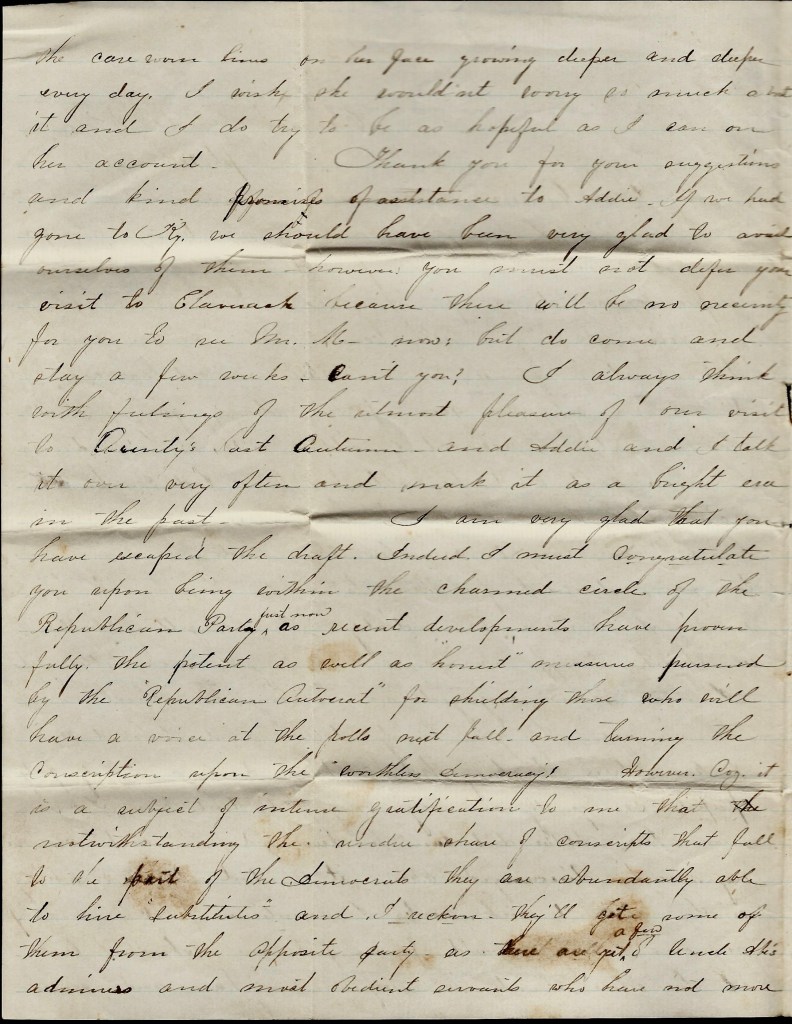 the care worn lines on her face growing deeper and deeper
every day. I wish she wouldnt worry so much about
it and I do try to be as hopeful as I can on
her account - Thank you for your suggestions
and kind promises of assistance to Addie - If we had
gone to Ky. we should have been very glad to avail
ourselves of them however you must not defer your
visit to Claverack because there will be no necessity
for you to see Mr. M- now; but do come and
stay a few weeks - Can't you? I always think
with feelings of the utmost pleasure of our visit
to Aunty's last Autumn - and Addie and I talk
it over very often and mark it as a bright era
in the past - I am very glad that you
have escaped the draft. Indeed I must congratulate
you upon being within the charmed circle of the
Republican Party just now as recent developments have proven
fully the potent as well as "honest" measures pursued
by the "Republican Autocrat" for shielding those who will
have a voice at the polls next fall - and turning the
Conscription upon the "worthless Democracy! However Coz. it
is a subject of intense gratification to me that
notwithstanding the undue share of conscripts that fall
to the part of the Democrats they are abundantly able
to hire "substitutes" and I reckon - they'll get some of
them from the opposite party as there are yet a few of Uncle Abe's
admirers and most obedient servants who have not more